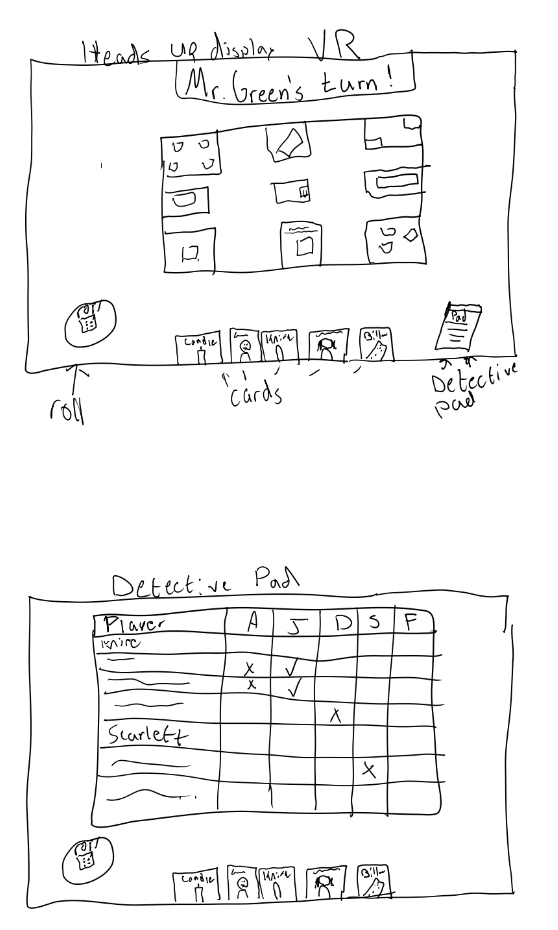 Heads up display VR
Mr. Green's turn!
roll
Candle
Knife
Bill
Pad
roll
cards
Detective
pad
Detective Pad
Player A J D S F
Knife
X ✓
X ✓
X
Scarlett
X
roll
Candle
Knife
Bill